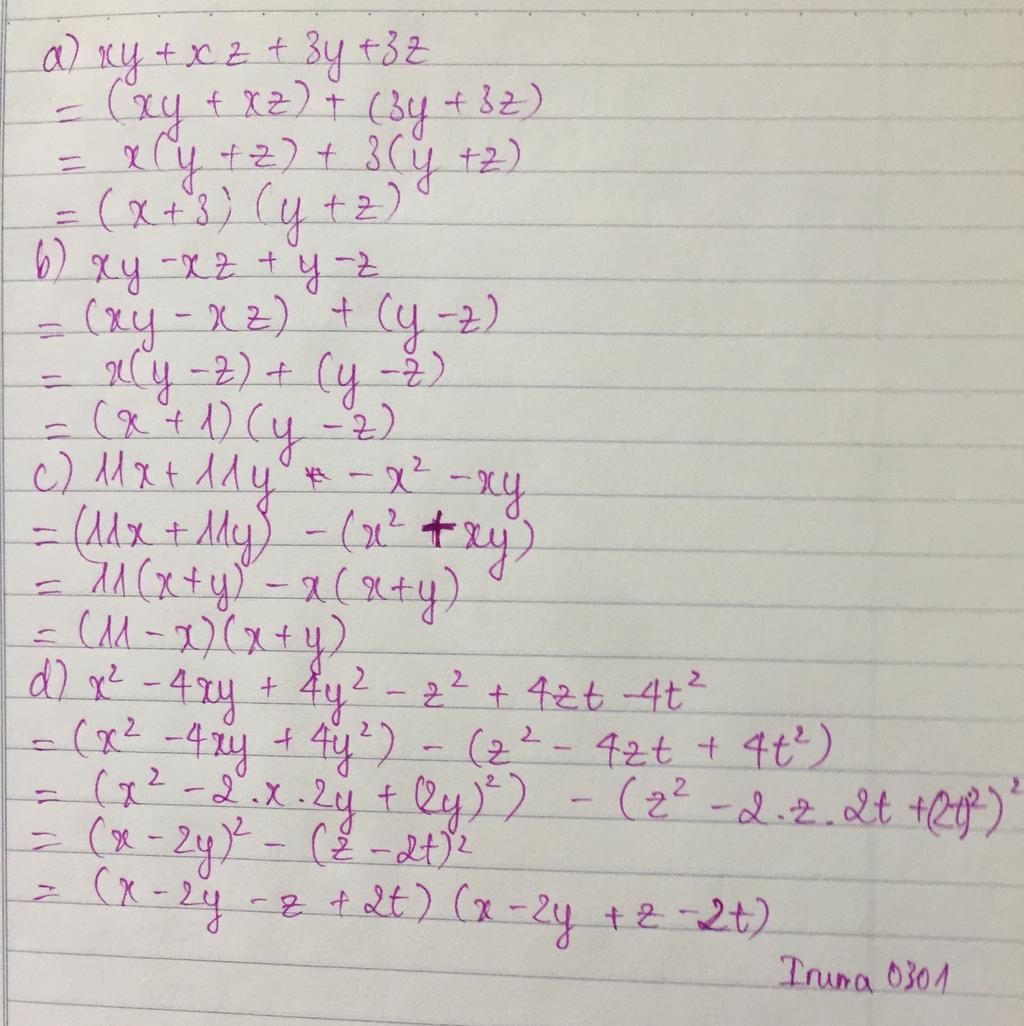 a) xy + xz + 3y + 3z
= (xy + xz) + (3y + 3z)
= x(y + z) + 3(y + z)
= (x + 3) (y + z)
b) xy - xz + y - z
= (xy - xz) + (y - z)
= x(y - z) + (y - z)
= (x + 1) (y - z)
c) 11x + 11y - x² - xy
= (11x + 11y) - (x² + xy)
= 11(x + y) - x(x + y)
= (11 - x)(x + y)
d) x² - 4xy + 4y² - z² + 4zt - 4t²
= (x² - 4xy + 4y²) - (z² - 4zt + 4t²)
= (x² - 2.x.2y + (2y)²) - (z² - 2.z.2t + (2t)²)²
= (x - 2y)² - (z - 2t)²
= (x - 2y - z + 2t) (x - 2y + z - 2t)
Iruma 0301